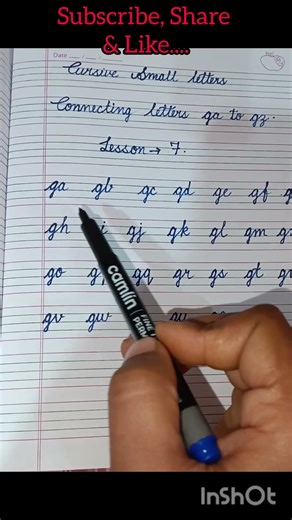 Subscribe, Share
& Like....
Date
Cursive Small letters
Connecting letters ga to gz.
Lesson → 7.
ga gb gc gd ge gf
gh gj gk gl gm
go gq gr gs gt
gv gw
camlin
FINE
PERM
InShOt